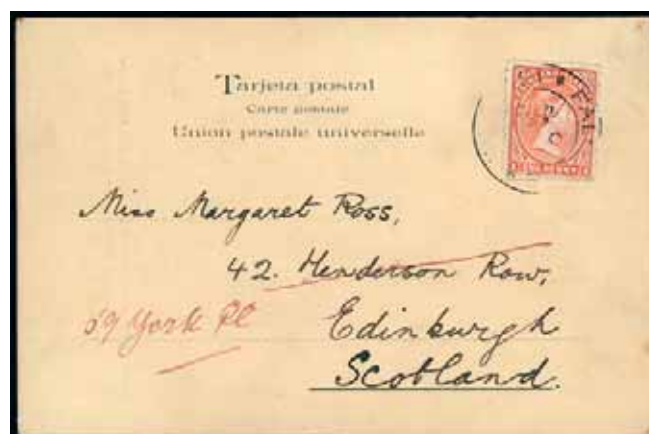 Tarjeta postal
Carte postale
Union postale universelle
Miss Margaret Ross,
42. Henderson Row,
59 York Pl
Edinburgh
Scotland.